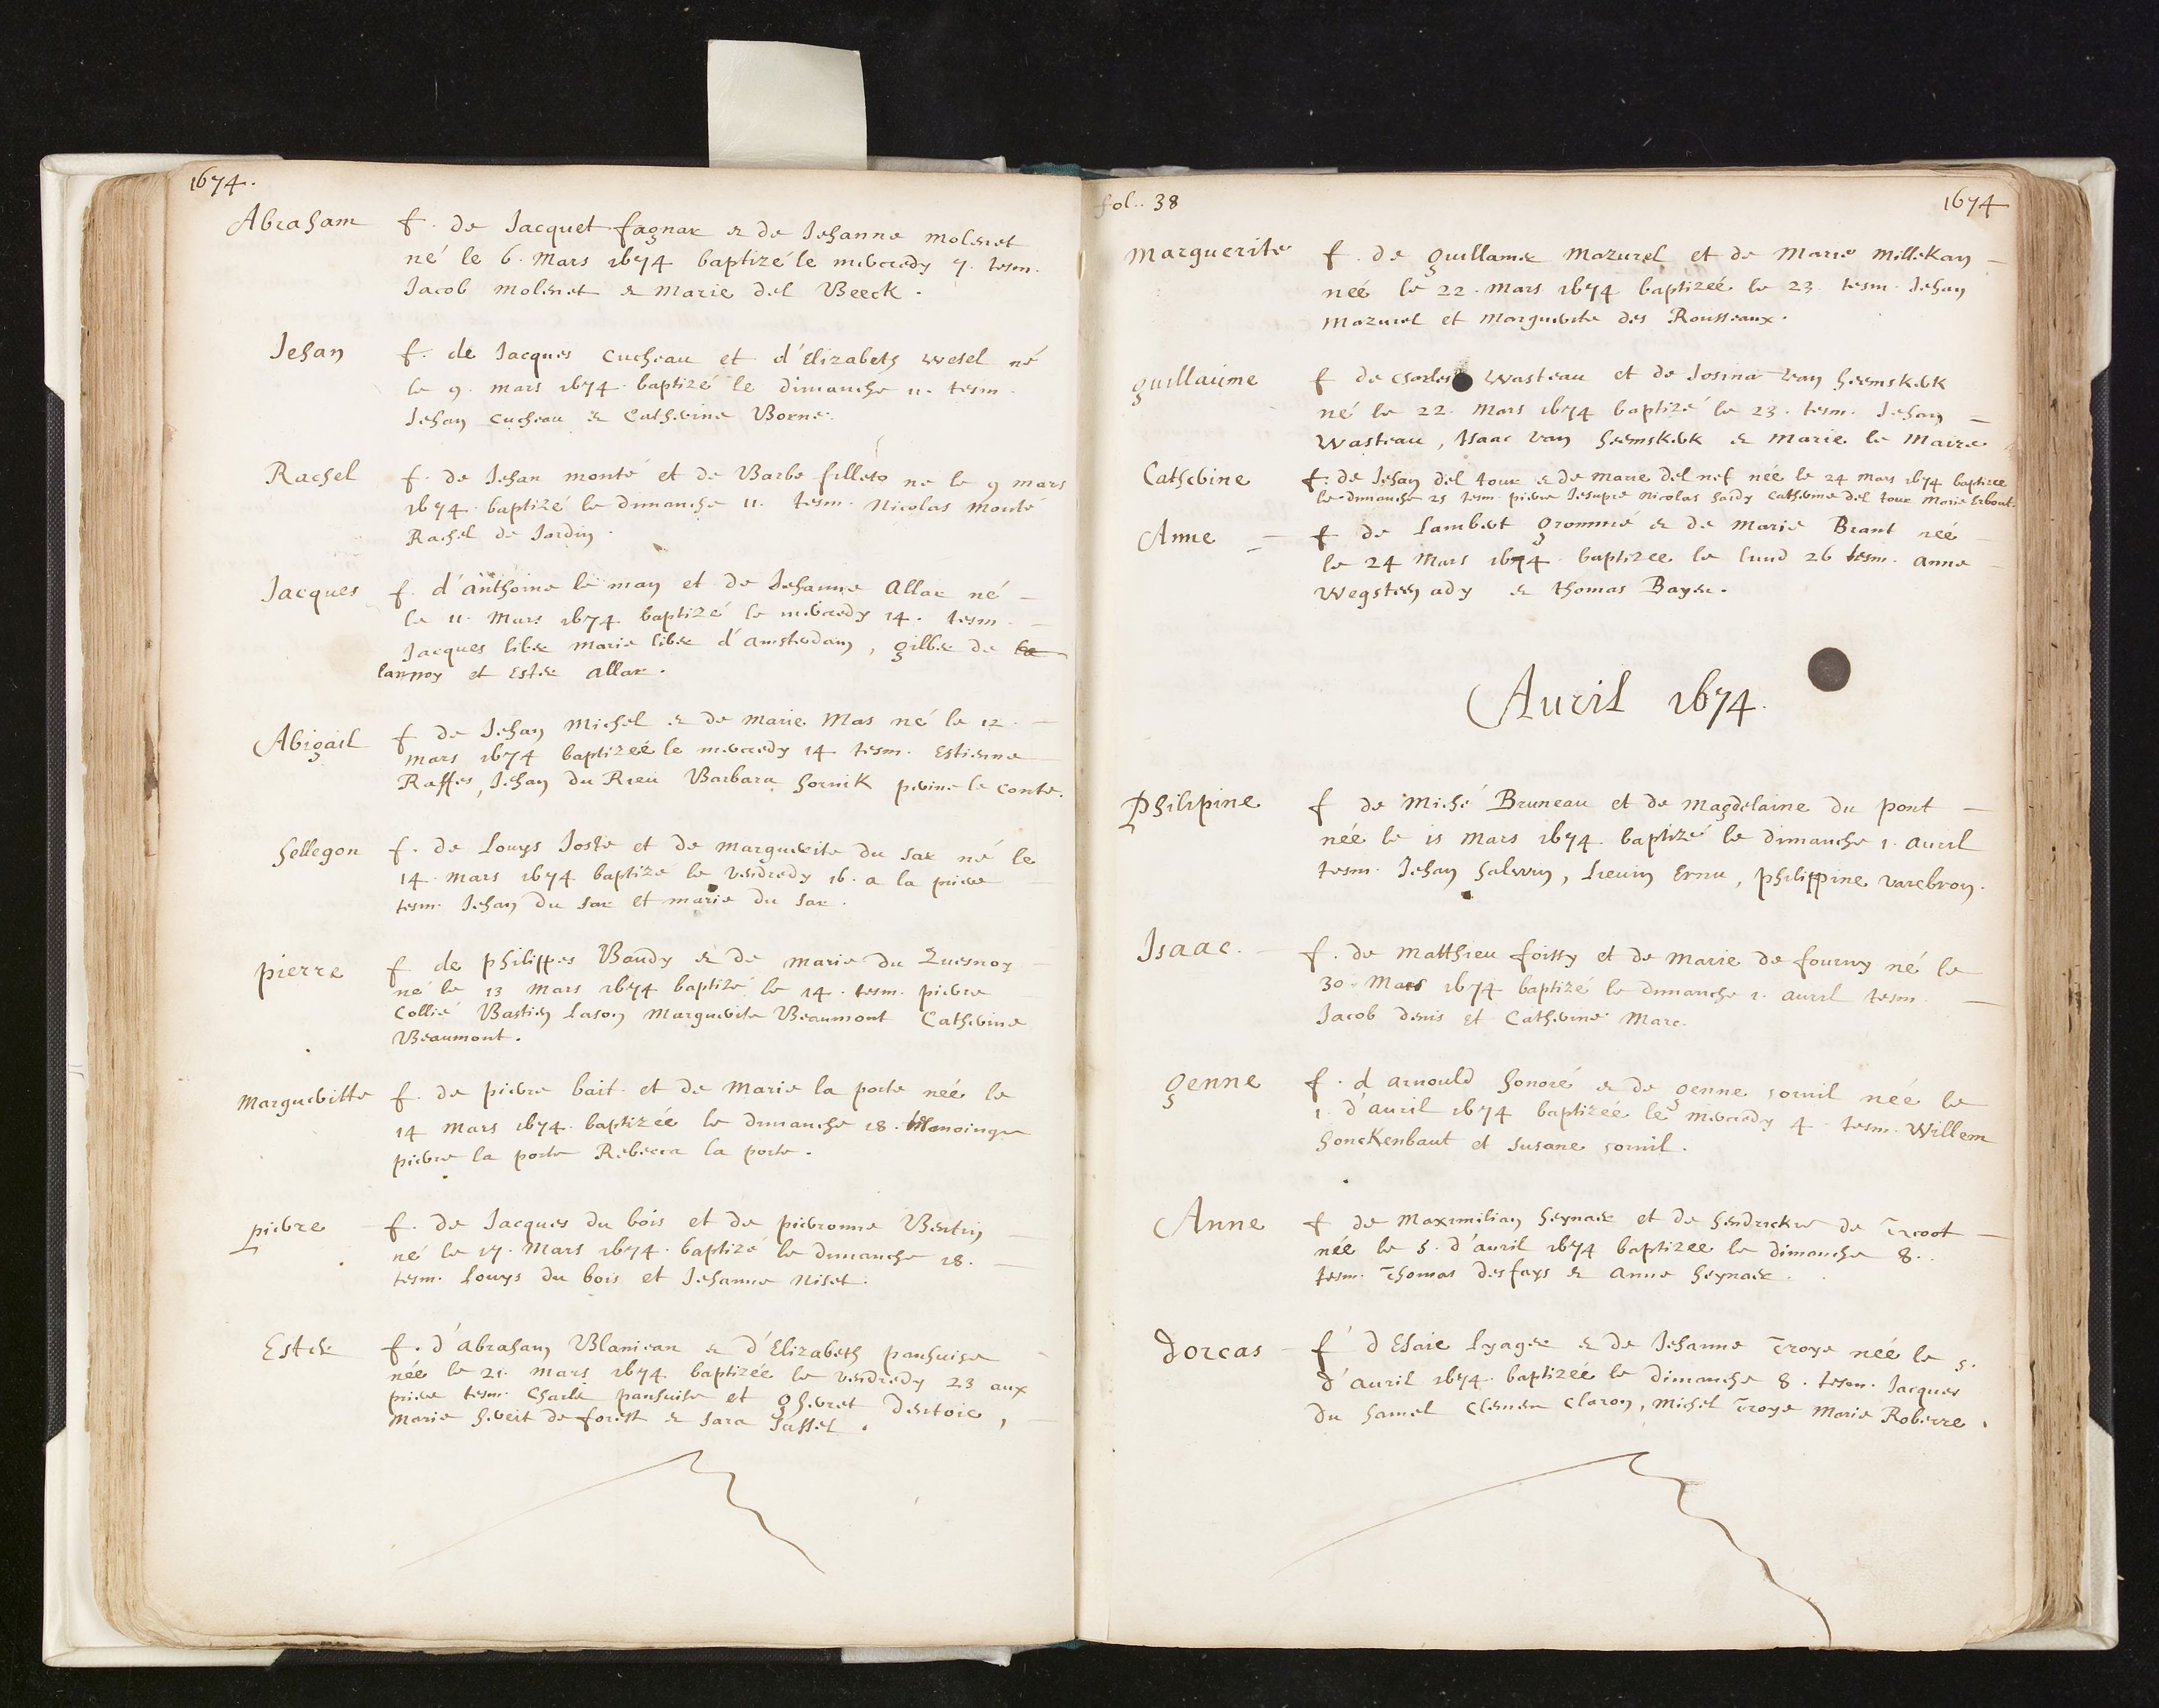 1674.
Abraham f. de Jacquet fagnar & de Jehanne molenet
né le 6. Mars 1674 baptizé le mecredy 7. tesm.
Jacob molenet & Marie del Beeck.
Jehan f. de Jacques Cucheau et d'Elizabeth wesel né
le 9. mars 1674. baptizé le dimanche 11. tesm.
Jehan Cucheau & Catherine Borne.
Rachel f. de Jehan monté et de Barbe filleto né le 9 mars
1674. baptizé le dimanche 11. tesm. Nicolas monté
Rachel de Jardin.
Jacques f. d'anthoine le man et de Jehanne Allar né
le 11. Mars 1674 baptizé le mecredy 14. tesm.
Jacques liber Marie liber d'amsterdam, gilber de
lannoy et Ester allar.
Abigail f de Jehan Michel & de marie Mas né le 12.
mars 1674 baptizeé le mecredy 14 tesm. Estienne
Raffes, Jehan du Rieu Barbara hornik perine le conte.
hellegon f. de Louys Joste et de marguerite du sar né le
14. mars 1674 baptizé le vendredy 16. a la priere
tesm. Jehan du sar et marie du sar.
pierre f de philippes Baudy & de marie du Quesnoy
né le 13 Mars 1674 baptizé le 14. tesm. pierre
Collié Bastien Lason Marguerite Beaumont Catherine
Beaumont.
Margueritte f. de pierre bait et de Marie la porte neé le
14 mars 1674. baptizeé le dimanche 18. temoingn
pierre la porte Rebecca la porte.
pierre f. de Jacques du bois et de pieronne Bentin
né le 17. Mars 1674. baptizé le dimanche 18.
tesm. Louys du bois et Jehanne Niset.
Ester f. d'abraham Blanian & d'Elizabeth panhuise
née le 21. mars 1674. baptizée le vendredy 23 aux
priere tesm. Charle panhuise et gherret Dentoir,
Marie hverit de forest & sara Jassel.
fol. 38 1674
Marguerite f. de guillamer Mazurel et de Marie Millekan
neé le 22. mars 1674 baptizeé le 23 tesm. Jehan
Mazurel et Marguerite des Rousseaux.
guillaume f de Charles Wasteau et de Josina van heemskerk
né le 22. Mars 1674 baptizé le 23. tesm. Jehan
Wasteau, Isaac van heemskerk & Marie le Maire
Catherine f. de Jehan del tour & de Marie del nef née le 24 mars 1674 baptizee
le dimanche 25 tesm. pierre Jesupre Nicolas hardy Catherine del tour Marie Erbout.
Anne f de Lambert grommé & de Marie Brant neé
le 24 Mars 1674. baptizee le lund 26 tesm. anne
Wegsteen ady & thomas Bayer.
Auril 1674.
Philipine f de Miché Bruneau et de Magdelaine du pont
née le 15 mars 1674. baptizé le dimanche 1. auril
tesm. Jehan halwin, Lieuin Ernu, philippine varebron.
Isaac. f. de Matthieu foissy et de Marie de fourny né le
30. Mars 1674 baptizé le dimanche 1. auril tesm.
Jacob denis et Catherine Marc.
genne f. d arnould honoré & de genne cornil neé le
1. d'auril 1674 baptizeé le mecredy 4. tesm. Willem
honckenbaut et susane cornil.
Anne f de Maximilian heynder et de hendrickie de Troot
née le 5. d'auril 1674 baptizee le dimanche 8.
tesm. Thomas desfays & anne heynder.
Dorcas f d Esaie Lyager & de Jehanne Troye neé le 5.
d'auril 1674. baptizeé le dimanche 8. tesm. Jacques
du hamel Clemen Claron, Michel Troye Marie Roberre.